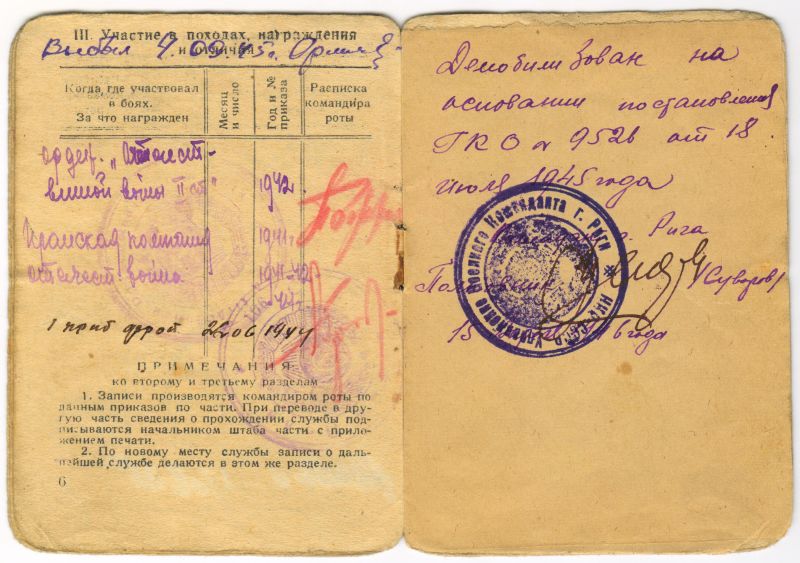 III. Участие в походах, награждения
и отличия
Выбыл 4.09.45г.
Когда где участвовал
в боях.
За что награжден
Месяц
и число
Год и №
приказа
Расписка
командира
роты
орден „Отечест-
венной войны II ст"
1942
Иранская
1941г.
отечест. война
1941-42
1 приб фрон 22/06/1944
ПРИМЕЧАНИЯ
ко второму и третьему разделам
1. Записи производятся командиром роты по
данным приказов по части. При переводе в дру-
гую часть сведения о прохождении службы под-
писываются начальником штаба части с прило-
жением печати.
2. По новому месту службы записи о даль-
нейшей службе делаются в этом же разделе.
6
Демобилизован на
основании постановления
ГКО № 9526 от 18
июля 1945 года
г. Рига
/Суворов/
15
6 года
Управление Военного Коменданта г. Риги